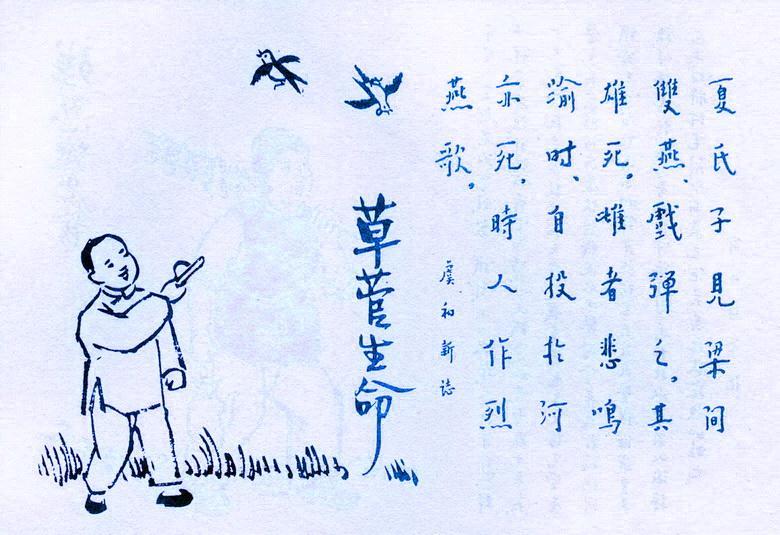 夏氏子見梁間
雙燕、戲彈之。其
雄死。雌者悲鳴
渝時、自投於河
亦死。時人作烈
燕歌。
虞初新誌
草菅生命